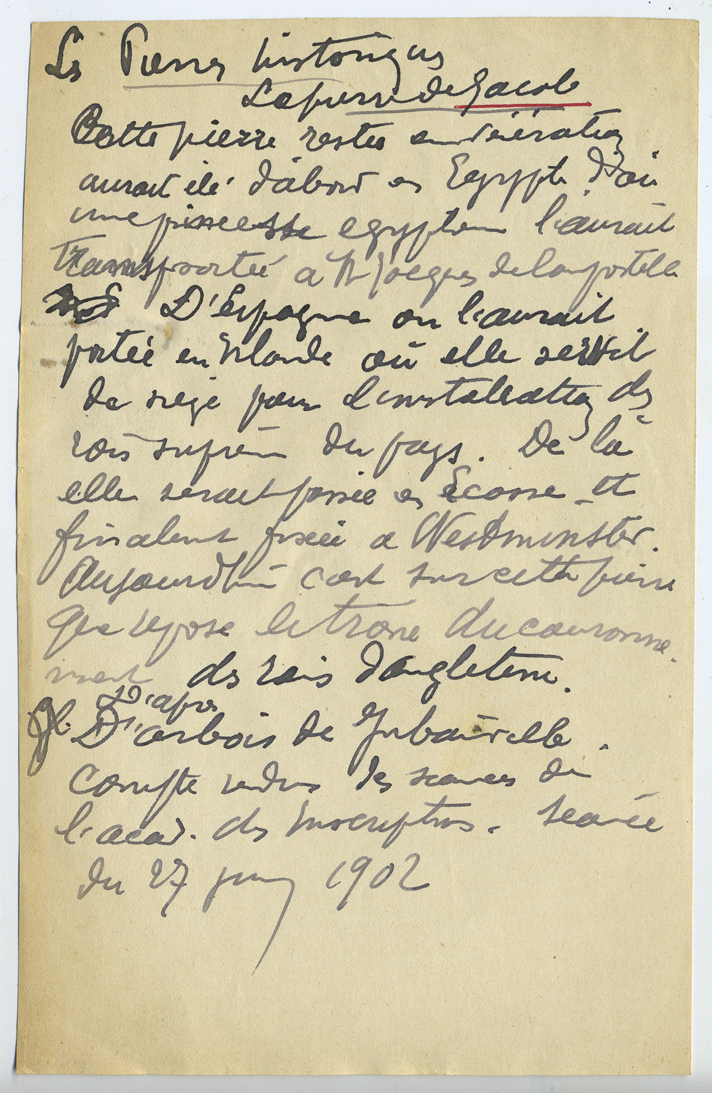 Les Pierres historiques
La pierre de Jacob
Cette pierre restée en vénération
aurait été d'abord en Egypte d'où
une princesse egyptienne l'aurait
transportée à St Jacques de Compostella
D'Espagne on l'aurait
portée en Irlande où elle servit
de siege pour l'installation des
rois suprêm du pays. De là
elle serait passée en Ecosse et
finalement fixée a Westminster.
Aujourd'hui c'est sur cette pierre
que repose le trône du couronne-
ment des rois d'angleterre.
D'apres
D'arbois de Jubainville.
Compte rendus des seances de
l'acad. des Inscriptions. Seance
du 27 juin 1902